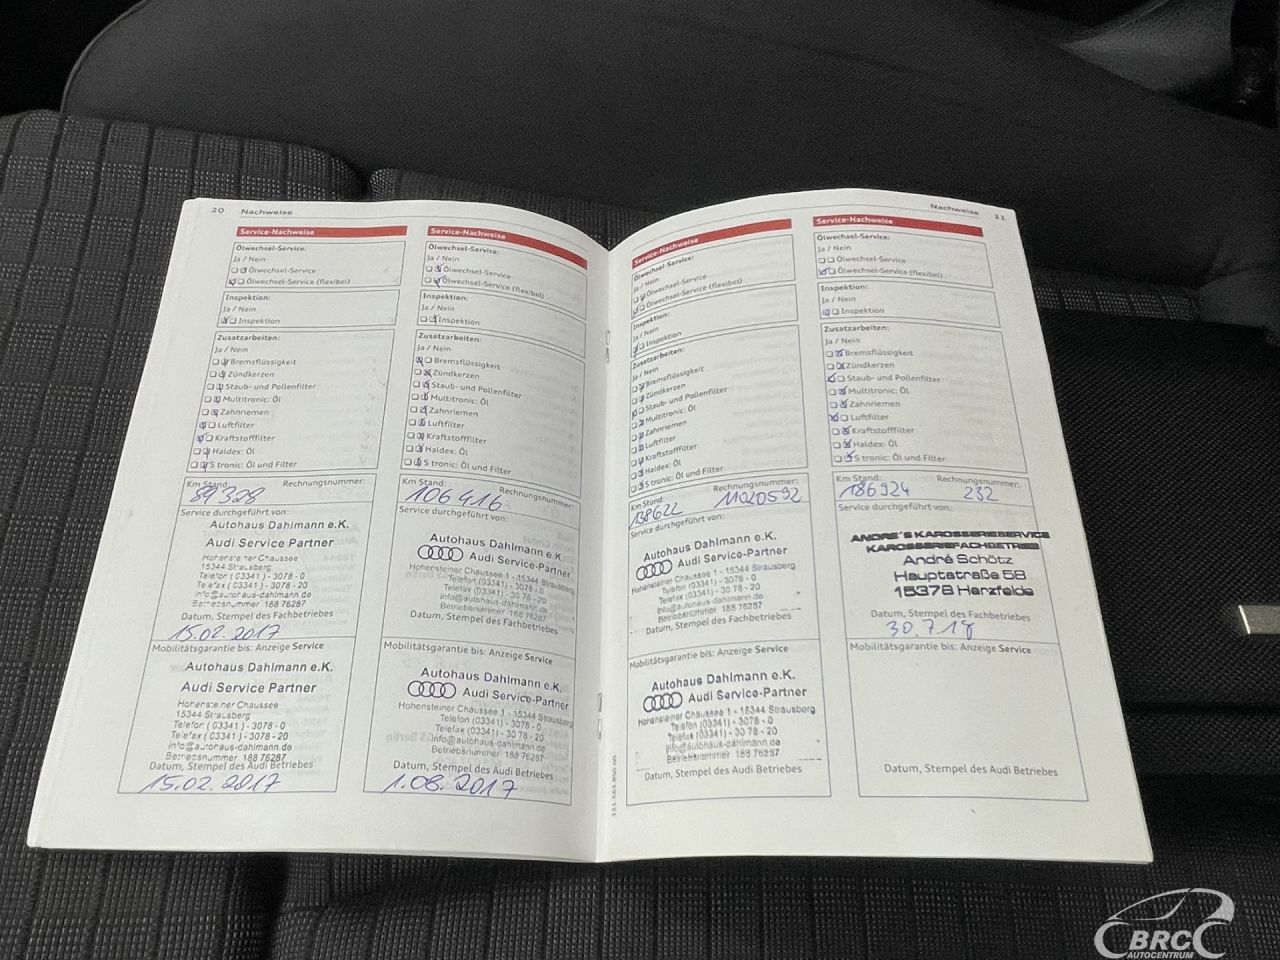 20 Nachweise
Service-Nachweise
Ölwechsel-Service:
Ja / Nein
Ölwechsel-Service
Ölwechsel-Service (flexibel)
Inspektion:
Ja / Nein
Inspektion
Zusatzarbeiten:
Ja / Nein
Bremsflüssigkeit
Zündkerzen
Staub- und Pollenfilter
Multitronic: Öl
Zahnriemen
Luftfilter
Kraftstofffilter
Haldex: Öl
S tronic: Öl und Filter
Km Stand: Rechnungsnummer:
89328
Service durchgeführt von:
Autohaus Dahlmann e.K.
Audi Service Partner
Hohensteiner Chaussee
15344 Strausberg
Telefon (03341) - 3078 - 0
Telefax (03341) - 3078 - 20
info@autohaus-dahlmann.de
Betriebsnummer 188 76287
Datum, Stempel des Fachbetriebes
15.02.2017
Mobilitätsgarantie bis: Anzeige Service
Autohaus Dahlmann e.K.
Audi Service Partner
Hohensteiner Chaussee
15344 Strausberg
Telefon (03341) - 3078 - 0
Telefax (03341) - 3078 - 20
info@autohaus-dahlmann.de
Betriebsnummer 188 76287
Datum, Stempel des Audi Betriebes
15.02.2017
Service-Nachweise
Ölwechsel-Service:
Ja / Nein
Ölwechsel-Service
Ölwechsel-Service (flexibel)
Inspektion:
Ja / Nein
Inspektion
Zusatzarbeiten:
Ja / Nein
Bremsflüssigkeit
Zündkerzen
Staub- und Pollenfilter
Multitronic: Öl
Zahnriemen
Luftfilter
Kraftstofffilter
Haldex: Öl
S tronic: Öl und Filter
Km Stand: Rechnungsnummer:
106416
Service durchgeführt von:
Autohaus Dahlmann e.K.
Audi Service-Partner
Hohensteiner Chaussee 1 - 15344 Strausberg
Telefon (03341) - 3078 - 0
Telefax (03341) - 3078 - 20
info@autohaus-dahlmann.de
Betriebsnummer 188 76287
Datum, Stempel des Fachbetriebes
Mobilitätsgarantie bis: Anzeige Service
Autohaus Dahlmann e.K.
Audi Service-Partner
Hohensteiner Chaussee 1 - 15344 Strausberg
Telefon (03341) - 3078 - 0
Telefax (03341) - 3078 - 20
info@autohaus-dahlmann.de
Betriebsnummer 188 76287
Datum, Stempel des Audi Betriebes
1.08.2017
Nachweise 21
Service-Nachweise
Ölwechsel-Service:
Ja / Nein
Ölwechsel-Service
Ölwechsel-Service (flexibel)
Inspektion:
Ja / Nein
Inspektion
Zusatzarbeiten:
Ja / Nein
Bremsflüssigkeit
Zündkerzen
Staub- und Pollenfilter
Multitronic: Öl
Zahnriemen
Luftfilter
Kraftstofffilter
Haldex: Öl
S tronic: Öl und Filter
Km Stand: Rechnungsnummer:
138622 11020592
Service durchgeführt von:
Autohaus Dahlmann e.K.
Audi Service-Partner
Hohensteiner Chaussee 1 - 15344 Strausberg
Telefon (03341) - 3078 - 0
Telefax (03341) - 3078 - 20
info@autohaus-dahlmann.de
Betriebsnummer 188 76287
Datum, Stempel des Fachbetriebes
Mobilitätsgarantie bis: Anzeige Service
Autohaus Dahlmann e.K.
Audi Service-Partner
Hohensteiner Chaussee 1 - 15344 Strausberg
Telefon (03341) - 3078 - 0
Telefax (03341) - 3078 - 20
info@autohaus-dahlmann.de
Betriebsnummer 188 76287
Datum, Stempel des Audi Betriebes
Service-Nachweise
Ölwechsel-Service:
Ja / Nein
Ölwechsel-Service
Ölwechsel-Service (flexibel)
Inspektion:
Ja / Nein
Inspektion
Zusatzarbeiten:
Ja / Nein
Bremsflüssigkeit
Zündkerzen
Staub- und Pollenfilter
Multitronic: Öl
Zahnriemen
Luftfilter
Kraftstofffilter
Haldex: Öl
S tronic: Öl und Filter
Km Stand: Rechnungsnummer:
186924 232
Service durchgeführt von:
ANDRE´S KAROSSERIESERVICE
KAROSSERIEFACHBETRIEB
André Schötz
Hauptstraße 58
15378 Herzfelde
Datum, Stempel des Fachbetriebes
30.7.18
Mobilitätsgarantie bis: Anzeige Service
Datum, Stempel des Audi Betriebes
BRC
AUTOCENTRUM